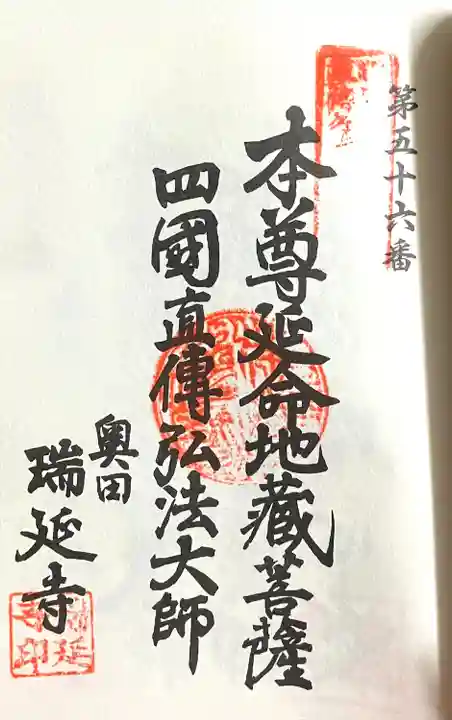 第五十六番
本尊延命地藏菩薩
四國直傳弘法大師
奥田
瑞延寺
瑞延
寺印